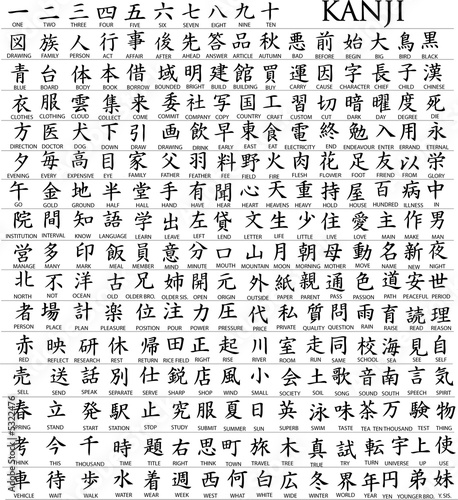 一 二 三 四 五 六 七 八 九 十 KANJI
ONE TWO THREE FOUR FIVE SIX SEVEN EIGHT NINE TEN
図 族 人 行 事 後 先 答 品 秋 悪 前 始 大 鳥 黒
DRAWING FAMILY PERSON ACT AFFAIR AFTER AHEAD ANSWER ARTICLE AUTUMN BAD BEFORE BEGIN BIG BIRD BLACK
青 台 体 本 借 域 明 建 館 買 運 因 字 長 子 漢
BLUE BOARD BODY BOOK BORROW BOUNDED BRIGHT BUILD BUILDING BUY CARRY CAUSE CHARACTER CHIEF CHILD CHINESE
衣 服 雲 集 来 委 社 写 国 工 習 切 暗 曜 度 死
CLOTHES CLOTHING CLOUD COLLECT COME COMMIT COMPANY COPY COUNTRY CRAFT CUSTOM CUT DARK DAY DEGREE DIE
方 医 犬 下 引 画 飲 早 東 食 電 終 勉 入 用 永
DIRECTION DOCTOR DOG DOWN DRAW DRAW DRINK EARLY EAST EAT ELECTRICITY END ENDEAVOUR ENTER ERRAND ETERNAL
夕 毎 高 目 家 父 羽 料 野 火 肉 花 足 友 以 栄
EVENING EVERY EXPENSIVE EYE FAMILY FATHER FEATHER FEE FIELD FIRE FLESH FLOWER FOOT FRIEND FROM GLORY
午 金 地 半 堂 手 有 聞 心 天 重 持 屋 百 病 中
GO GOLD GROUND HALF HALL HAND HAVE HEAR HEART HEAVENS HEAVY HOLD HOUSE HUNDRED ILLNESS IN
院 間 知 語 学 出 左 貸 文 生 少 住 愛 主 作 男
INSTITUTION INTERVAL KNOW LANGUAGE LEARN LEAVE LEFT LEND LETTER LIFE LITTLE LIVE LOVE MAIN MAKE MAN
営 多 印 飯 員 意 分 口 山 月 朝 母 動 名 新 夜
MANAGE MANY MARK MEAL MEMBER MIND MINUTE MOUTH MOUNTAIN MOON MORNING MOTHER MOVE NAME NEW NIGHT
北 不 洋 古 兄 姉 開 元 外 紙 親 通 色 道 安 世
NORTH NOT OCEAN OLD OLDER BRO. OLDER SIS. OPEN ORIGIN OUTSIDE PAPER PARENT PASS PASSION PATH PEACEFUL PERIOD
者 場 計 楽 位 注 力 圧 代 私 質 問 雨 育 読 理
PERSON PLACE PLAN PLEASURE POSITION POUR POWER PRESSURE PRICE PRIVATE QUALITY QUESTION RAIN RAISE READ REASON
赤 映 研 休 帰 田 正 起 川 室 走 同 校 海 見 自
RED REFLECT RESEARCH REST RETURN RICE FIELD RIGHT RISE RIVER ROOM RUN SAME SCHOOL SEA SEE SELF
売 送 話 別 仕 鋭 店 風 小 会 土 歌 音 南 言 気
SELL SEND SPEAK SEPARATE SERVE SHARP SHOP WIND SMALL SOCIETY SOIL SONG SOUND SOUTH SPEECH SPIRIT
春 立 発 駅 止 究 服 夏 日 英 泳 味 茶 万 験 物
SPRING STAND START STATION STOP STUDY SUBMIT SUMMER SUN SUPERB SWIM TASTE TEA TEN THOUSAND TEST THING
考 今 千 時 題 右 思 町 旅 木 真 試 転 宇 上 使
THINK THIS THOUSAND TIME TITLE RIGHT THINK TOWN TRAVEL TREE TRUE TRY TURN UNIVERSE UP USE
車 待 歩 水 着 週 西 何 白 広 冬 界 年 円 弟 妹
VEHICLE WAIT WALK WATER WEAR WEEK WEST WHAT WHITE WIDE WINTER WORLD YEAR YEN YOUNGER BRO. Y. SIS.